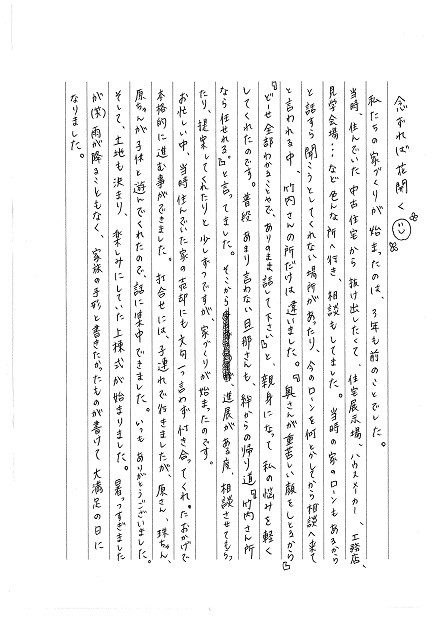 念ずれば花開く
私たちの家づくりが始まったのは、3年も前のことでした。
当時、住んでいた中古住宅から抜け出したくて、住宅展示場、ハウスメーカー、工務店、
見学会場…など色んな所へ行き、相談もしてました。当時の家のローンもあるから
と話すら聞こうとしてくれない場所があったり、今のローンを何とかしてから相談へ来て
と言われる中、竹内さんの所だけは違いました。『奥さんが重苦しい顔をしとるから』
『どーせ全部わかることやで、ありのまま話して下さい』と、親身になって私の悩みを軽く
してくれたのです。普段あまり言わない旦那さんも、絆からの帰り道『竹内さん所
なら任せれる』と言ってました。そこから、進展がある度、相談させてもらっ
たり、提案してくれたりと少しずつですが、家づくりが始まったのです。
お忙しい中、当時住んでいた家の売却にも文句一つ言わず付き合ってくれたおかげで
本格的に進む事ができました。打合せには、子連れで行きましたが、原さん、珠ちゃん、
原ちゃんが子供と遊んでくれたので、話に集中できました。いつもありがとうございました。
そして、土地も決まり、楽しみにしていた上棟式が始まりました。暑っすぎました
が(笑)雨が降ることもなく、家族の手形と書きたかったものが書けて大満足の日に
なりました。